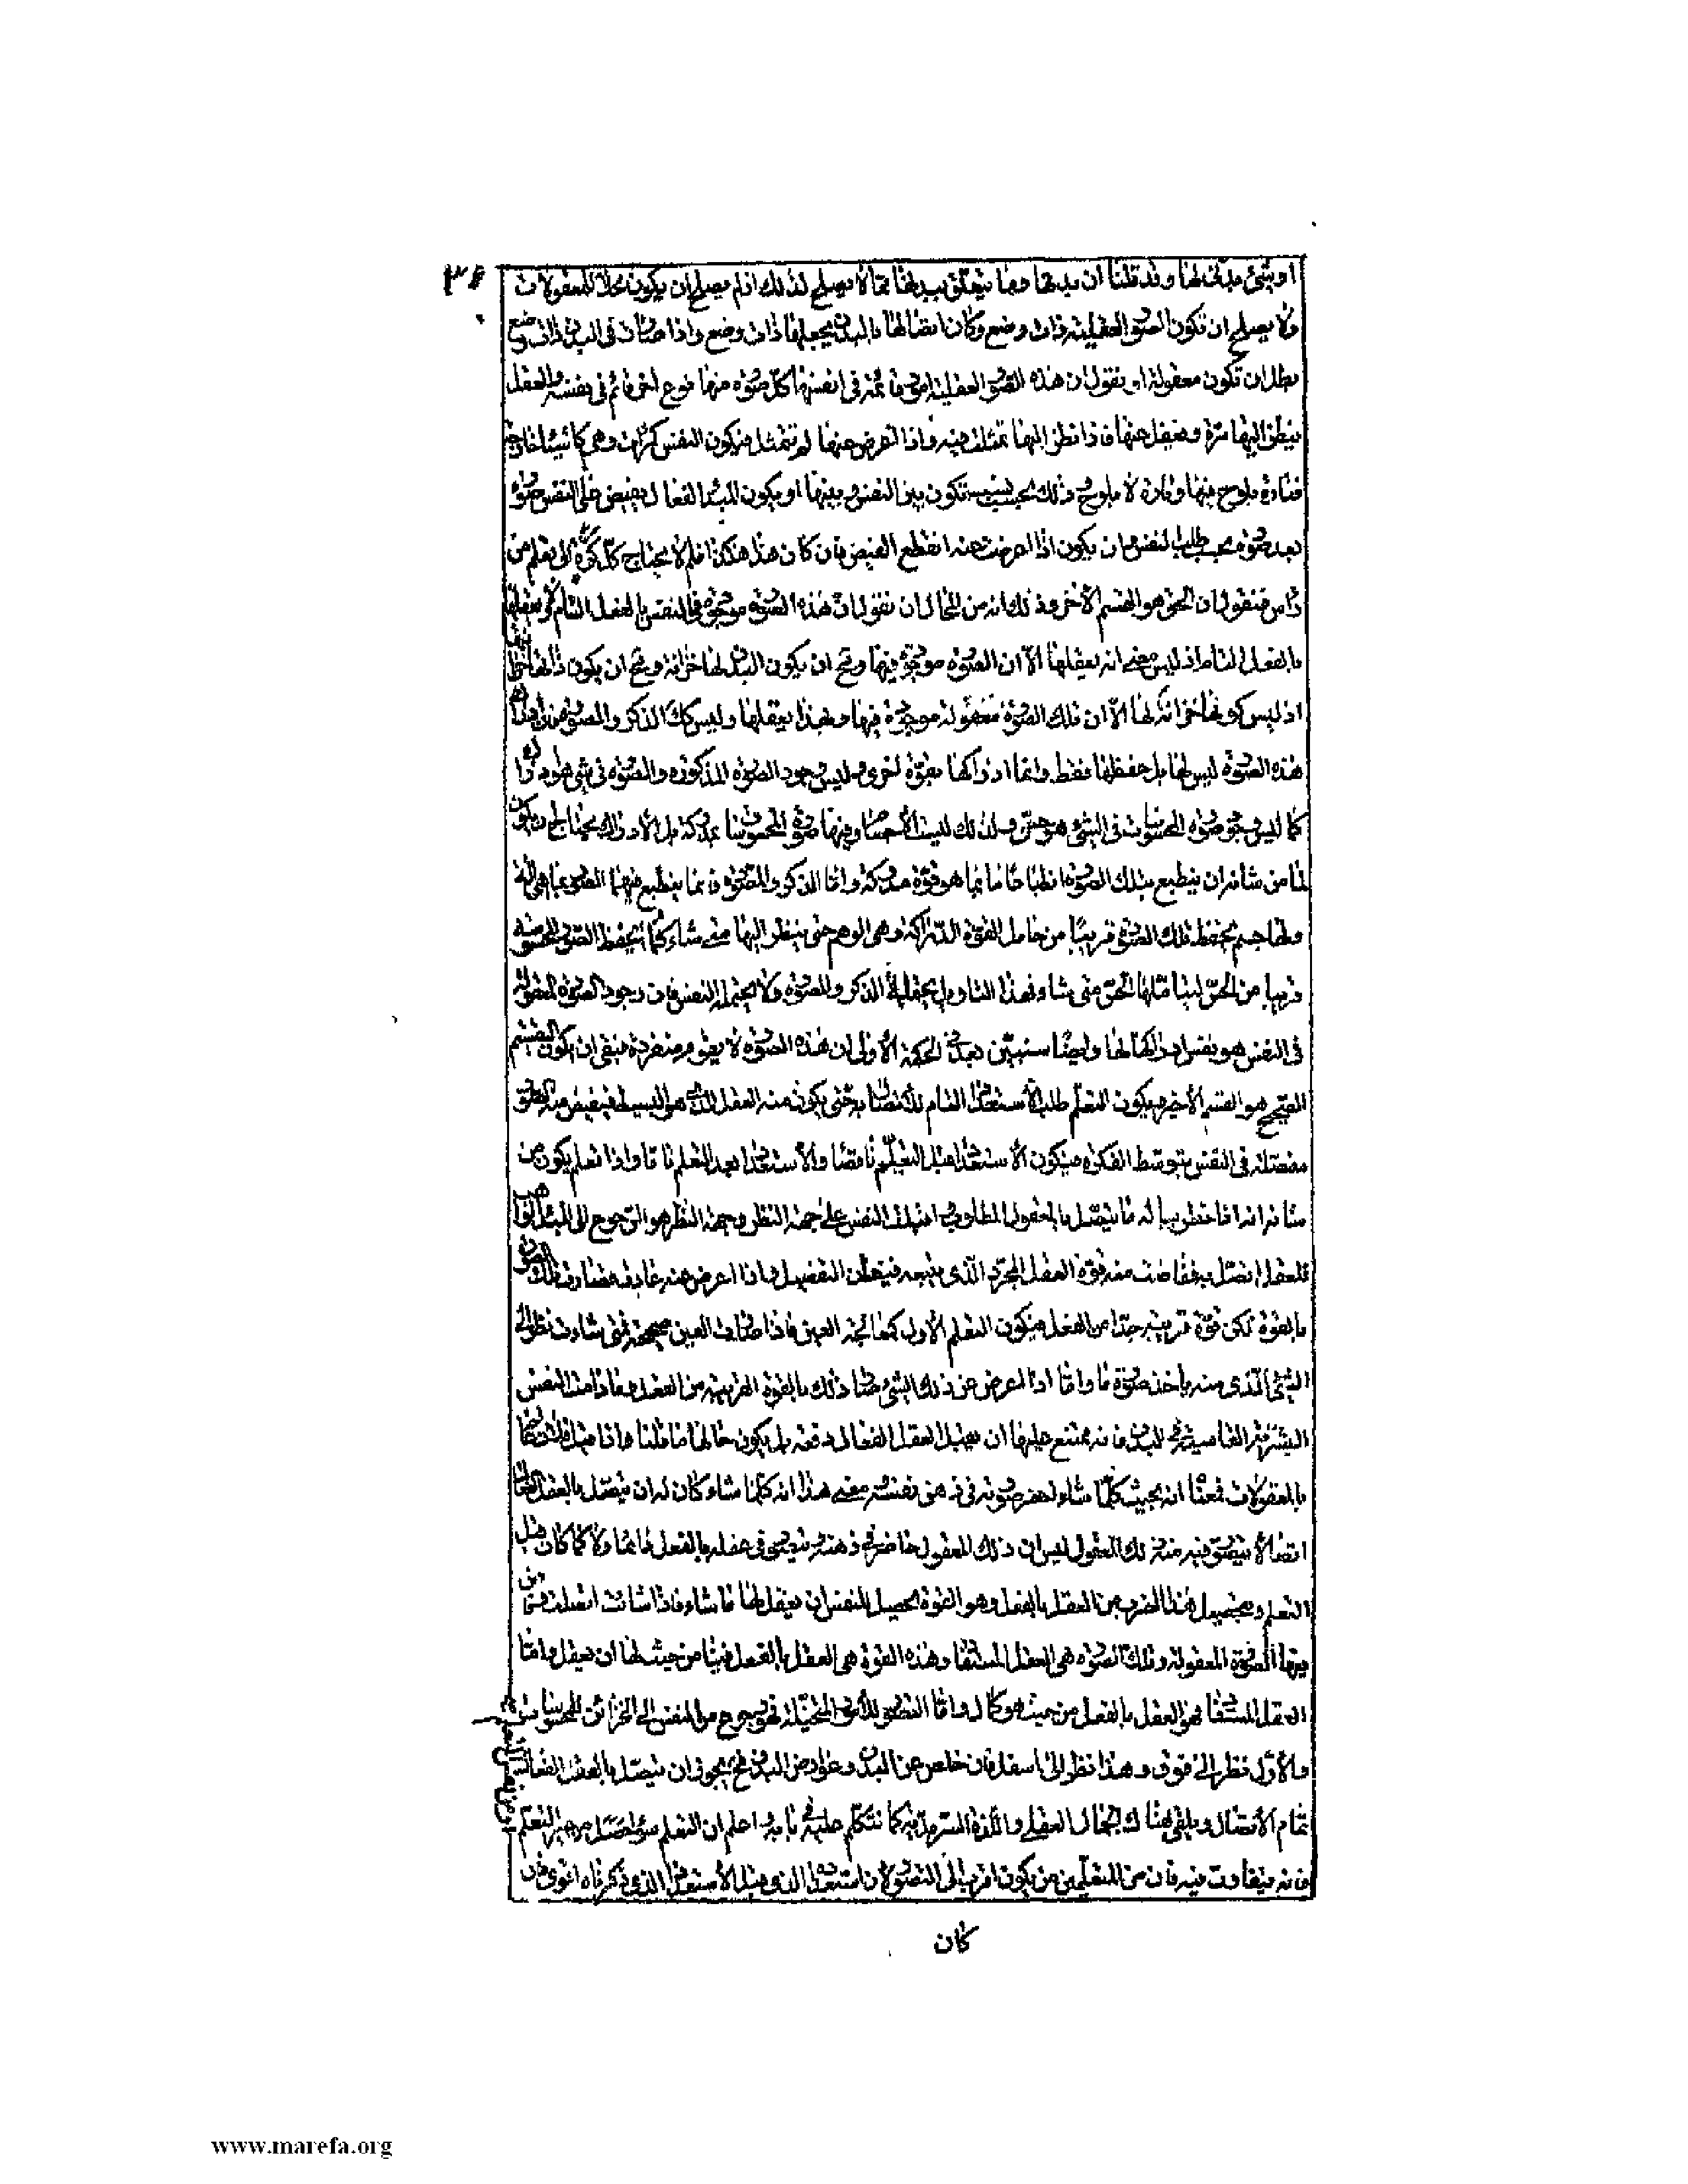 او شئ بدنى لها وقد قلنا ان بدنها وما يتعلق ببدنها مما لا يصلح لذلك اذ لم يصلح ان يكون محلا للمعقولات
ولا يصلح ان تكون الصور العقلية ذات وضع وكان اتصالها بالبدن يجعلها ذات وضع واذا صارت فى البدن ذات وضع
بطل ان تكون معقولة او نقول ان هذه الصور العقلية امور قائمة فى انفسها كل صورة منها نوع امر قائم فى نفسه والعقل
ينظر اليها مرة ويغفل عنها فاذا نظر اليها تمثلت فيه واذا اعرض عنها لم تتمثل فيكون النفس كمرآة وهى كاشياء خارجة
فتارة يلوح فيها وتارة لا يلوح وذلك بحسب نسب تكون بين النفس وبينها او يكون المبدأ الفعال يفيض على النفس صورة
بعد صورة بحسب طلب النفس وان يكون اذا اعرضت عنه انقطع الفيض فان كان هذا هكذا فلم لا يحتاج كل كرة الى تعلم من
رأس فنقول ان الحق هو القسم الأخر وذلك انه من المحال ان نقول ان هذه الصورة موجودة فى النفس بالفعل التام ولا تعقلها
بالفعل التام اذ ليس معنى انه يعقلها الا ان الصورة موجودة فيها ومح ان يكون البدن لها خزانة ومح ان يكون ذاتها خزانة
اذ ليس كونها خزانة لها الا ان تلك الصورة معقولة موجودة فيها وبهذا يعقلها وليس كك الذكر والمصورة فان ادراك
هذه الصورة ليس لها بل حفظها فقط وانما ادراكها بقوة اخرى وليس وجود الصورة المذكورة والمصورة فى شئ هو ادراك
كما ليس وجود صورة المحسوسات فى الشئ هو حس ولذلك ليست الأجسام وفيها صور المحسوسات بمدركة بل الادراك يحتاج ان يكون
لما من شأنه ان ينطبع بتلك الصورة انطباعا ما بما هو قوة مدركة واما الذكر والمصورة فانما ينطبع فيهما الصور بما هى آلة
ولها جسم يحفظ تلك الصور قريبا من حامل القوة الدراكة وهى الوهم حتى ينظر اليها متى شاء كما يحفظ الصور المحسوسة
قريبا من الحس ليتأملها الحس متى شاء فهذا التاويل يحتمله الذكر والمصورة ولا يحتمله النفس فان وجود الصورة المعقولة
فى النفس هو نفس ادراكها لها وايضا سنبين بعد فى الحكمة الأولى ان هذه الصورة لا يقوم منفردة فبقى ان يكون القسم
الصحيح هو القسم الأخير ويكون التعلم طلب الأستعداد التام للأتصال به حتى يكون منه العقل الذى هو البسيط فيفيض منه الصور
مفصلة فى النفس بتوسط الفكرة فيكون الأستعداد قبل التعلم ناقصا والأستعداد بعد التعلم تاما واذا تعلم يكون من
شانه انه اذا خطر بباله ما يتصل بالمعقول المطلوب اقبلت النفس على جهة النظر وجهة النظر هو الرجوع الى المبدأ الواهب
للعقل اتصل به ففاضت منه قوة العقل المجرد الذى يتبعه فيضان التفصيل واذا اعرض عنه عادت فصارت تلك الصورة
بالقوة لكن قوة قريبة جدا من الفعل فيكون التعلم الأول كمعالجة العين فاذا صارت العين صحيحة فمتى شاءت نظر الى
الشئ الذى منه ياخذ صورة ما واما اذا اعرض عن ذلك الشئ صار ذلك بالقوة القريبة من الفعل وما دامت النفس
البشرية العامية فى البدن فانه ممتنع عليها ان يقبل العقل الفعال دفعة بل يكون حالها ما قلنا واذا قيل ان فلانا عالم
بالمعقولات فمعناه انه بحيث كلما شاء احضر صورته فى ذهن نفسه ومعنى هذا انه كلما شاء كان له ان يتصل بالعقل الفعال
اتصالا يتصور فيه منه ذلك المعقول ليس ان ذلك المعقول حاضر فى ذهنه ومتصور فى عقله بالفعل دائما ولا كما كان قبل
التعلم وتحصيل هذا الضرب من العقل بالفعل وهو القوة يحصل للنفس ان يعقل لها ما شاء فاذا شائت اتصلت وفاض
فيها الصورة المعقولة وتلك الصورة هى العقل المستفاد وهذه القوة هى العقل بالفعل فينا من حيث لها ان يعقل واما
العقل المستفاد فهو العقل بالفعل من حيث هو كمال واما التصور للأمور المتخيلة فهو رجوع من النفس الى الخزائن للمحسوسات
والأول نظر الى فوق وهذا نظر الى اسفل فان خلص عن البدن وعوارض البدن فح يجوز ان يتصل بالعقل الفعال
تمام الأتصال ويلقى هناك الجمال العقلى واللذة السرمدية كما نتكلم عليه فى بابه و اعلم ان التعلم سواء حصل من غير المتعلم
فانه يتفاوت فيه فان من المتعلمين من يكون اقرب الى التصور لان استعداده الذى قبل الأستعداد الذى ذكرناه اقوى فان
كان
www.marefa.org